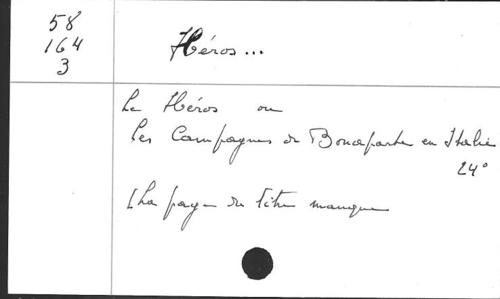 58
164
3
Héros...
Le Héros ou
les Campagnes de Bonaparte en Italie
24°
[La page du titre manque